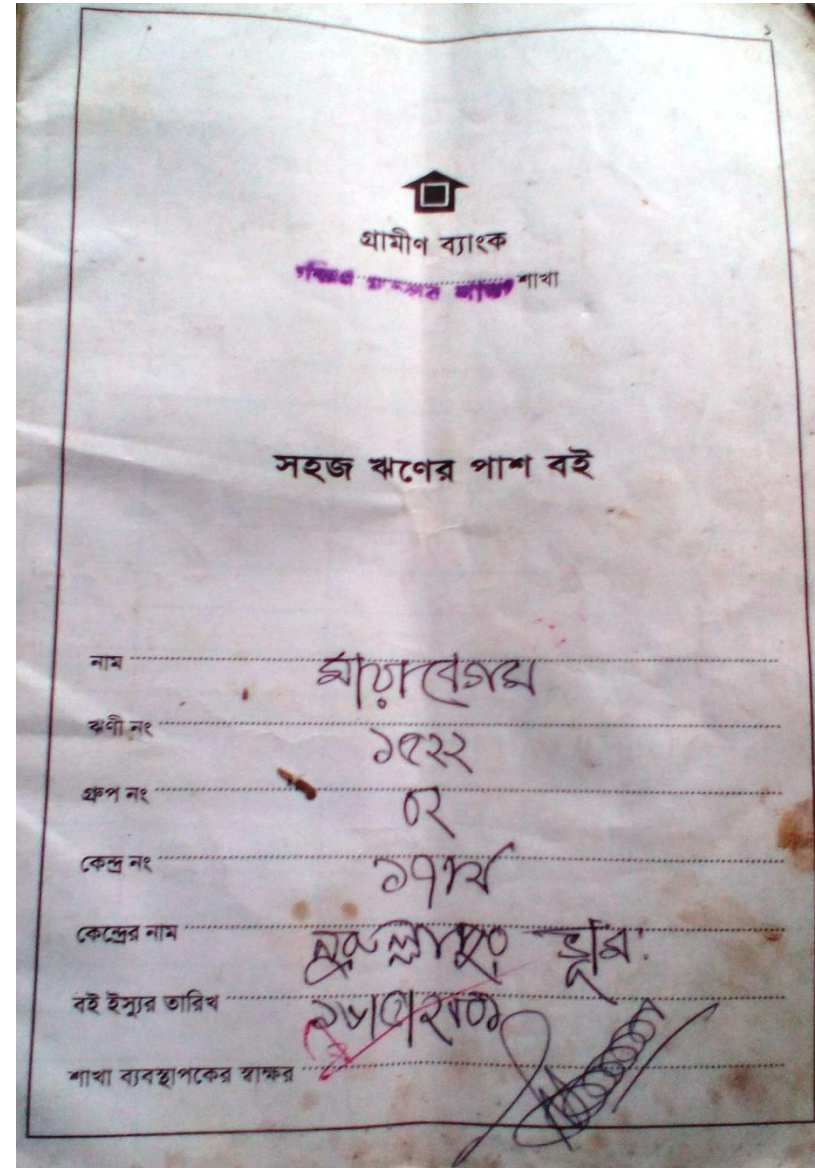 ১
গ্রামীণ ব্যাংক
শাখা
সহজ ঋণের পাশ বই
নাম মায়া বেগম
ঋণী নং ১৫২২
গ্রুপ নং ০২
কেন্দ্র নং
কেন্দ্রের নাম
বই ইস্যুর তারিখ
শাখা ব্যবস্থাপকের স্বাক্ষর